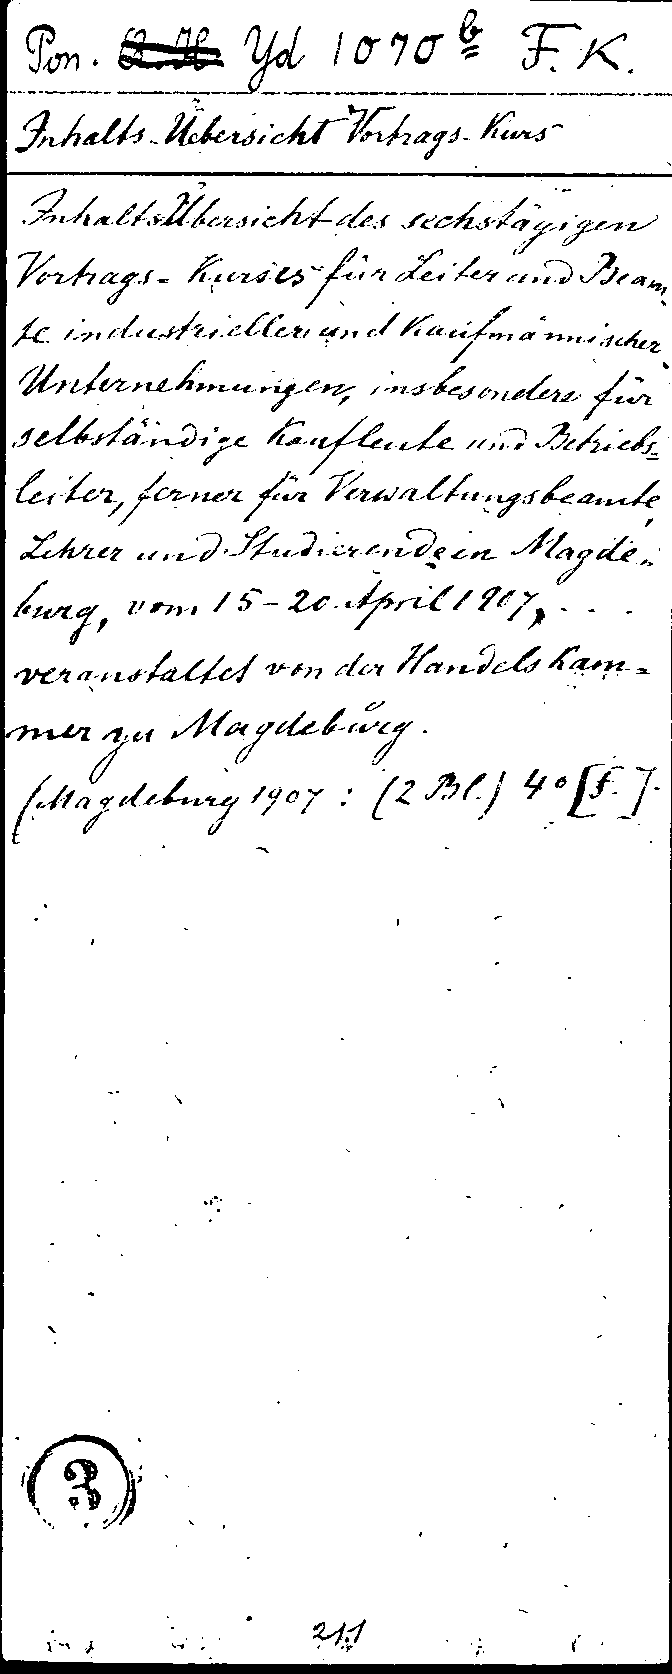 Pon. Yd 1070 b F. K.
Inhalts-Uebersicht Vortrags-Kurs
Inhalts Übersicht des sechstägigen
Vortrags-Kurses für Leiter und Beam-
te industrieller und kaufmännischer
Unternehmungen, insbesondere für
selbständige Kaufleute und Betriebs-
leiter, ferner für Verwaltungsbeamte,
Lehrer und Studierende in Magde-
burg, vom 15-20. April 1907, ...
veranstaltet von der Handelskam-
mer zu Magdeburg.
(Magdeburg 1907: (2 Bl.) 4° [F.].
3
211